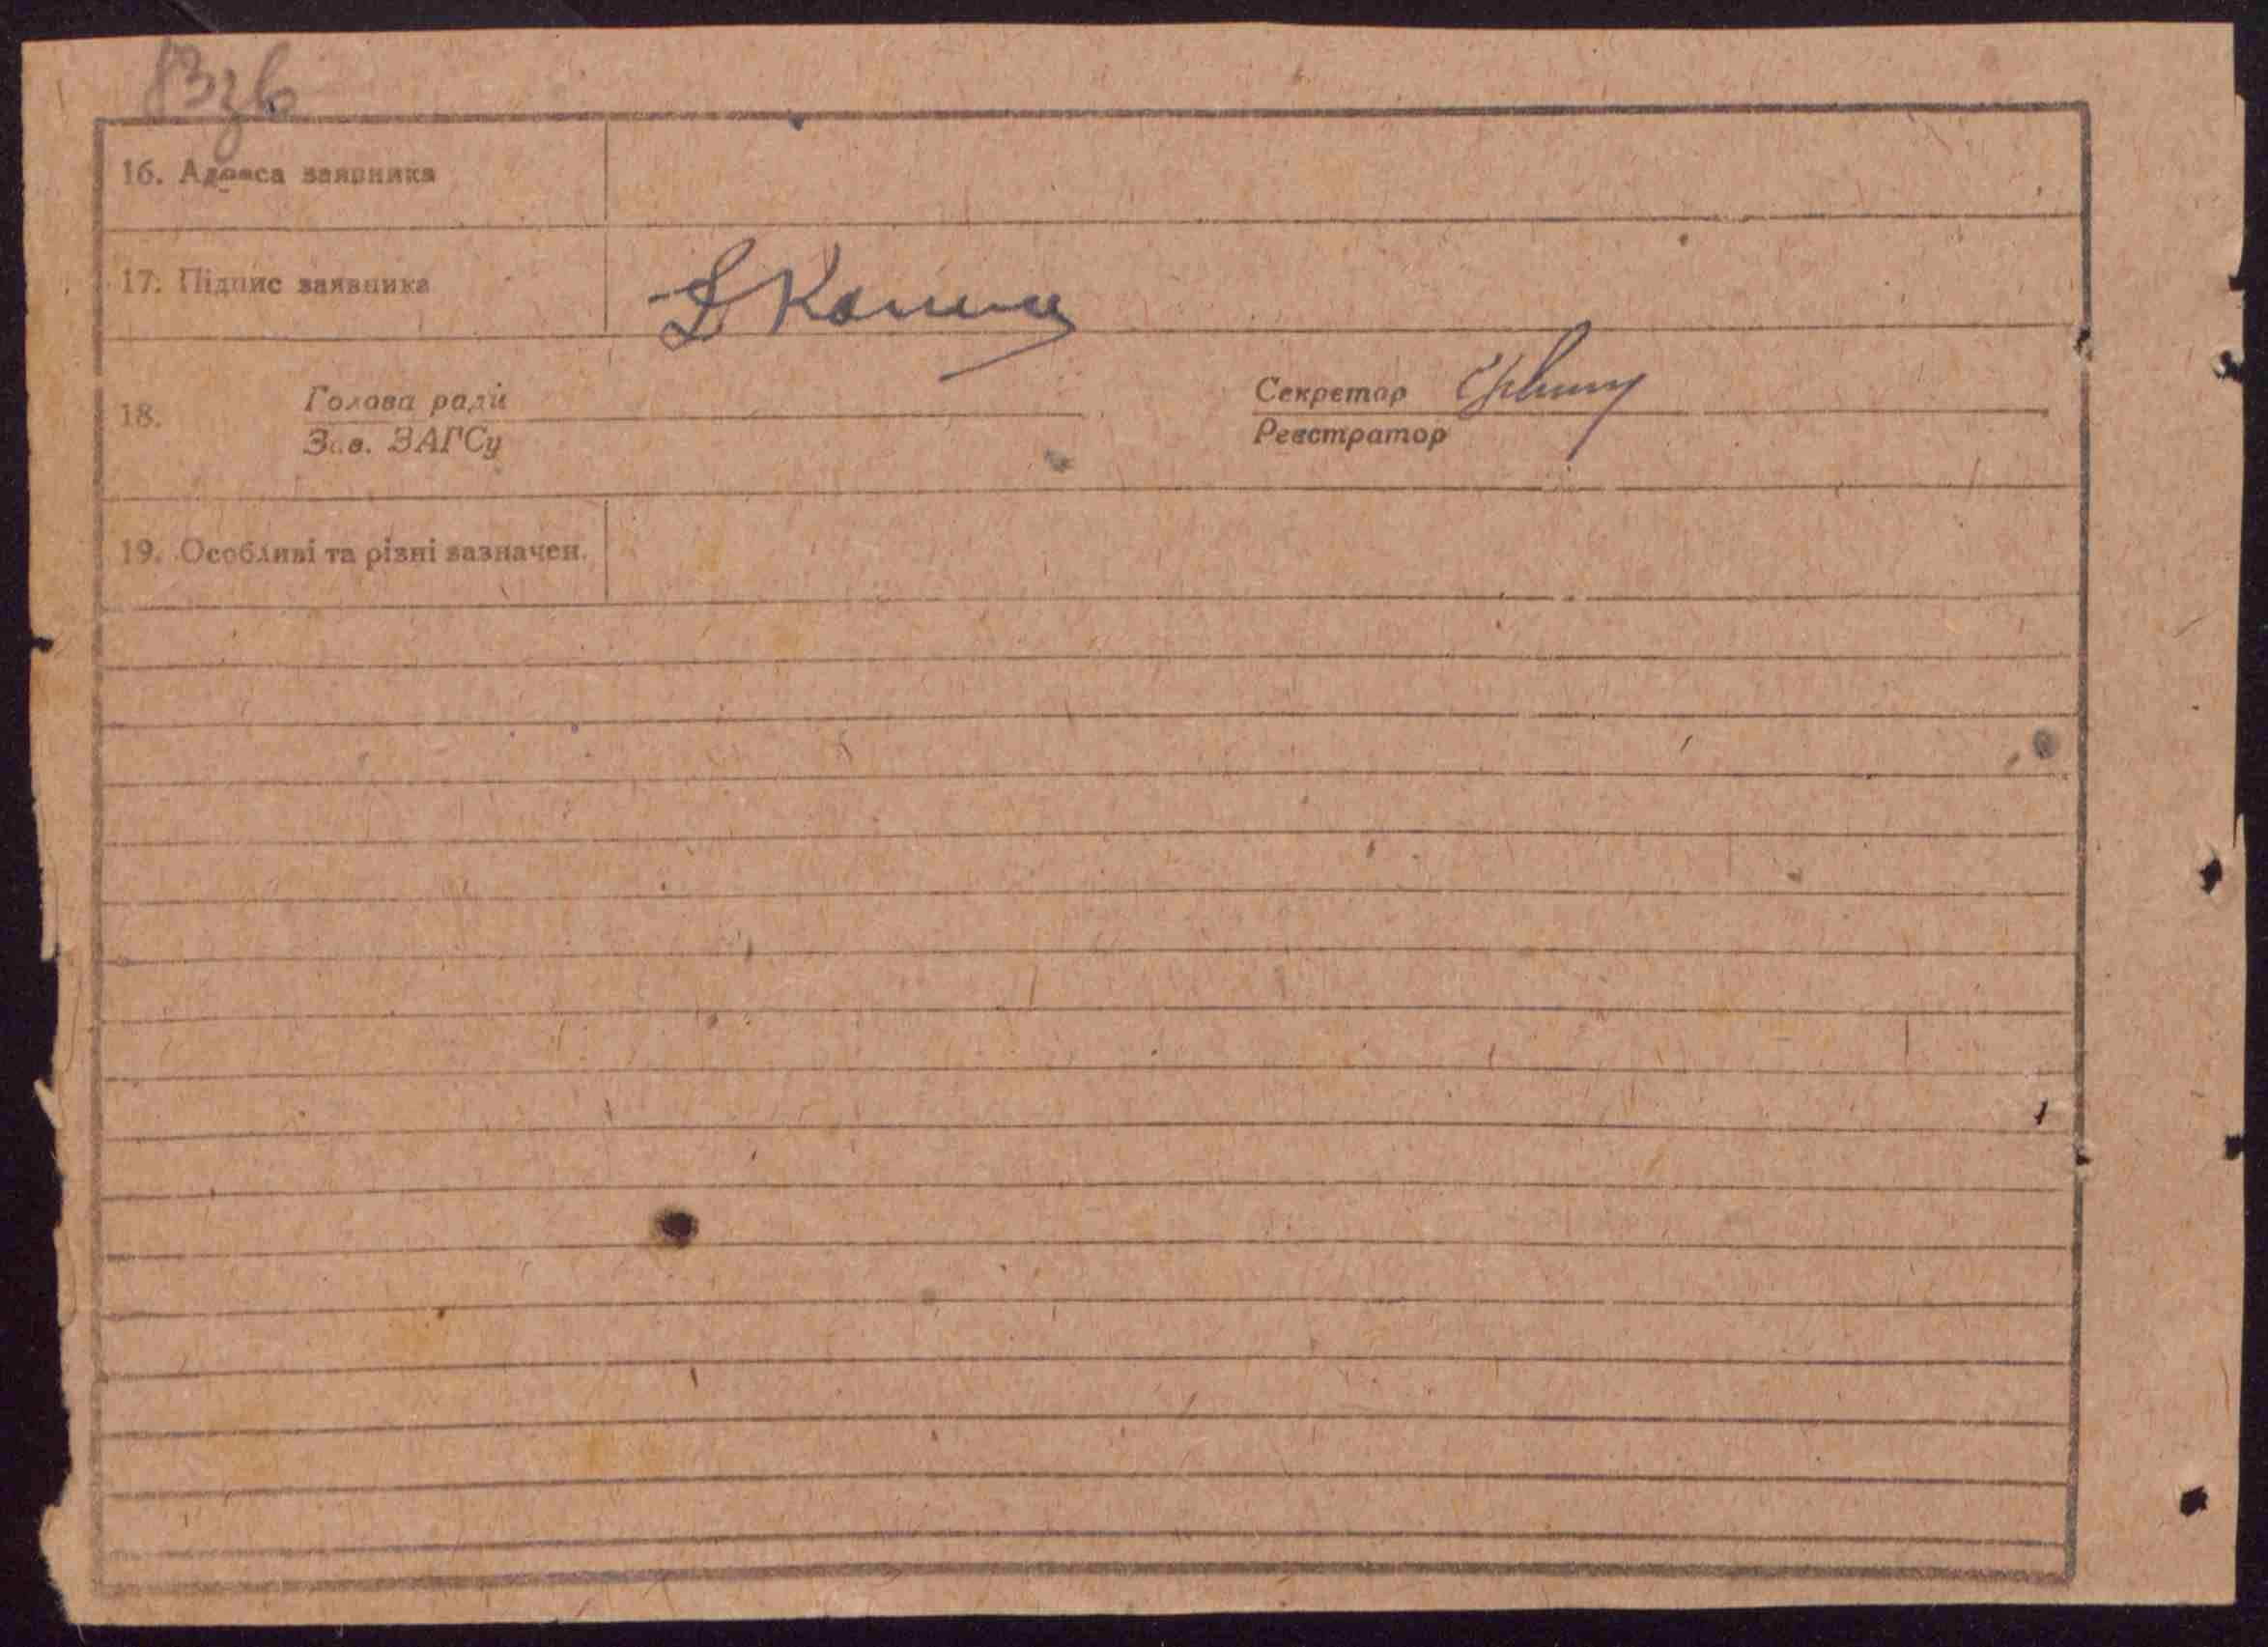 83зв
16. Адреса заявника
17. Підпис заявника
18. Голова ради Секретар
Зав. ЗАГСу Реєстратор
19. Особливі та різні зазначен.